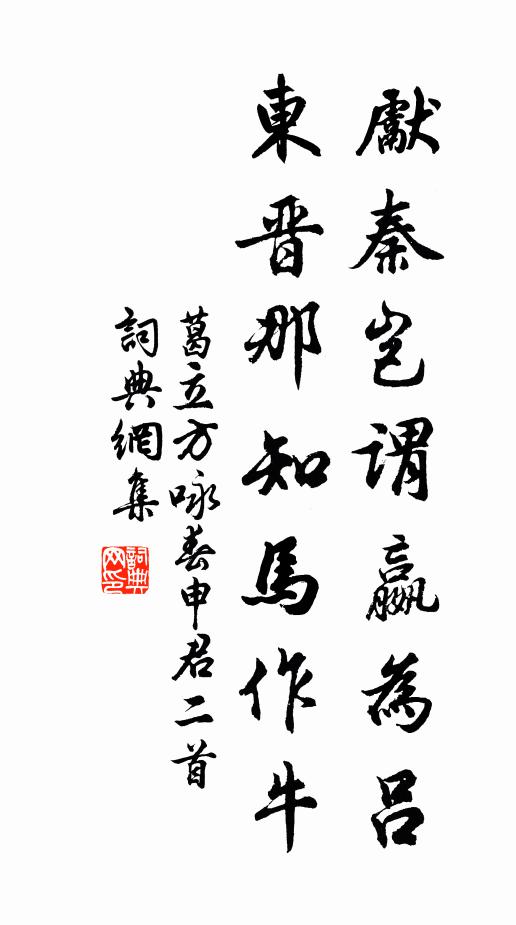 獻秦豈謂嬴為呂
東晋那知馬作牛
葛立方咏春申君二首
詞典網集
詞典网印